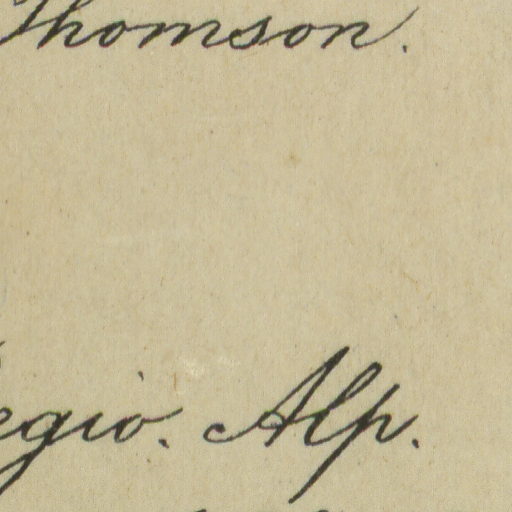 Thomson.
egio. Alp.